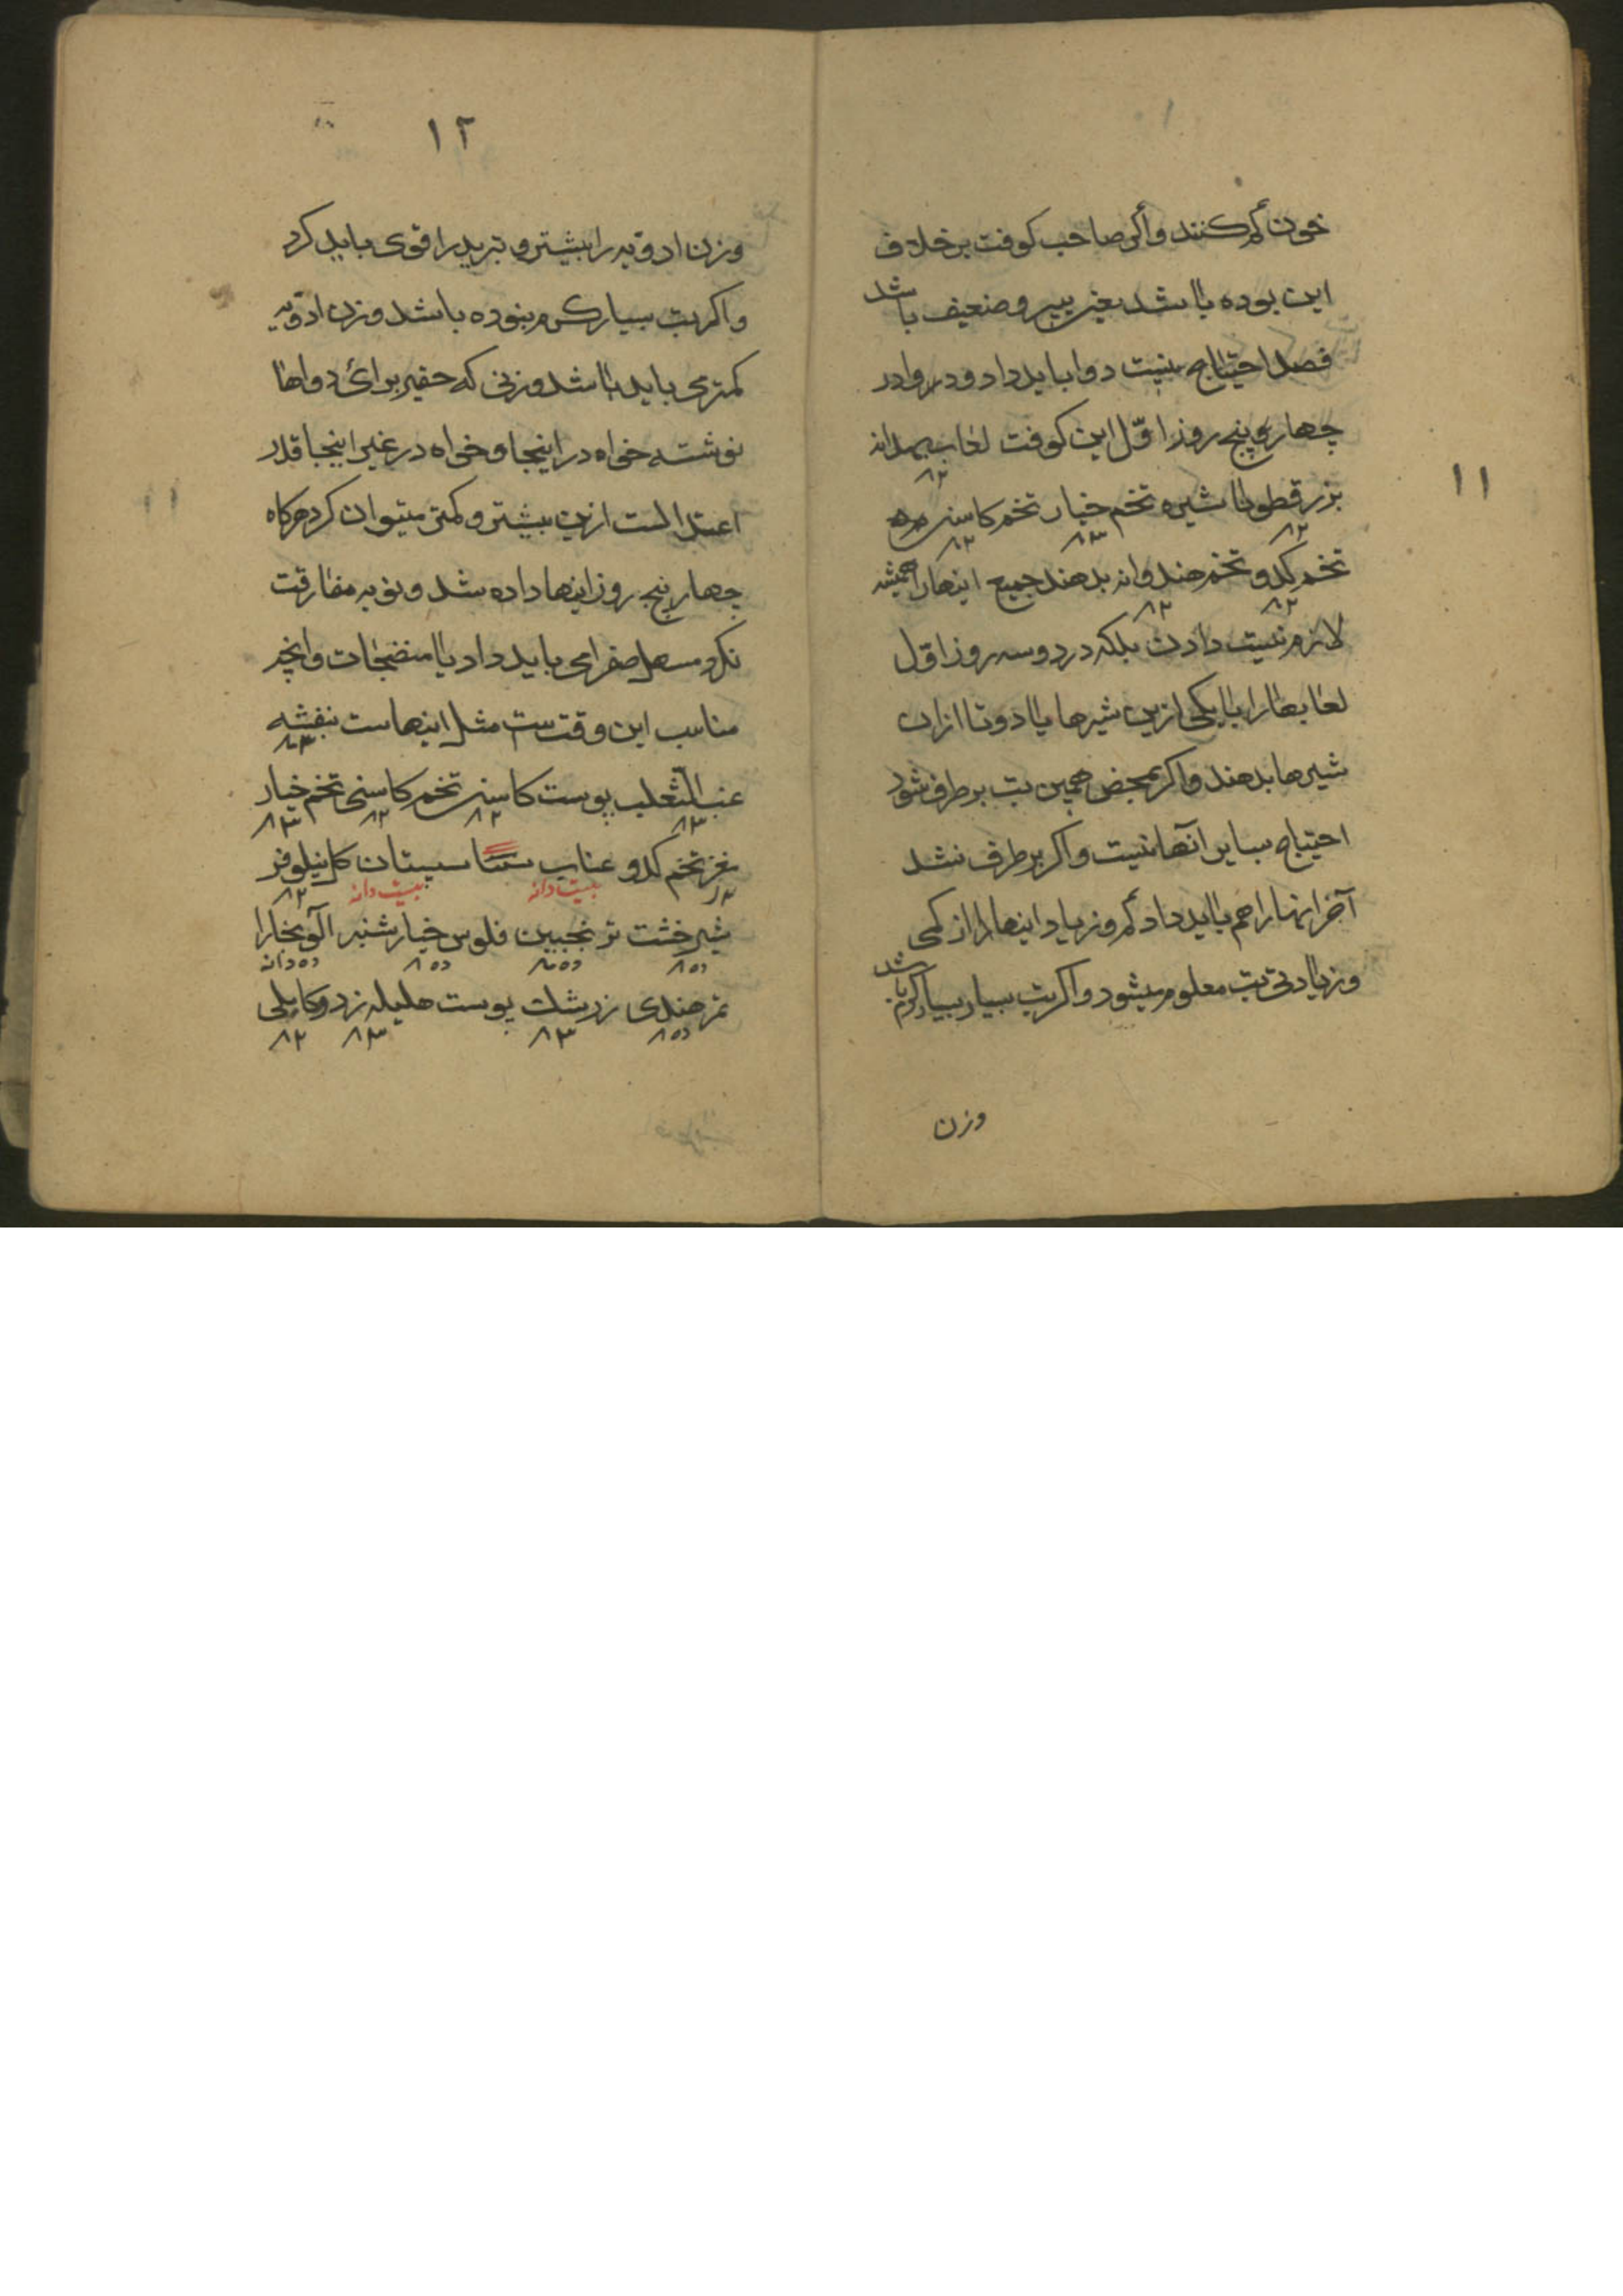 ۱۱
خون کم کنند و اکر صاحب کوفت برخلاف
این بوده باشد یعنی پیر و ضعیف باشد
فصد احتیاج نیست دوا باید داد و در
چهار و پنج روز اوّل این کوفت لعاب بهدانه
بزرقطونا شیره تخم خیار تخم کاسنی
تخم کدو تخم هندوانه بدهند جمیع اینها را همیشه
لازم نیست دادن بلکه در دو سه روز اوّل
لعابها را با یکی ازین شیرها یا دوتا ازان
شیرها بدهند و اکر بمحض همین تب برطرف شود
احتیاج بسایر آنها نیست و اکر برطرف نشد
آخر اینها را هم باید داد کم و زیاد اینها را از کمی
و زیادتی تب معلوم میشود و اکر تب بسیار بسیار کرم باشد
وزن
۱۲
وزن ادویه را بیشتر و تبرید را قوی باید کرد
و اکر تب بسیار کرم نبوده باشد وزن ادویه
کمتر می باید باشد وزنی که حقیر برای دواها
نوشته خواه در اینجا و خواه در غیر اینجا قدر
اعتدالست ازین بیشتر و کمتر میتوان کرد هرکاه
چهار پنج روز اینها داده شد و نوبه مفارقت
نکرد مسهل صفرا می باید داد با منضجات و انچه
مناسب این وقت ست مثل اینهاست بنفشه
۳
عنب الثعلب پوست کاسنی تخم کاسنی تخم خیار
۳ ۲ ۲ ۳
مغز تخم کدو عناب سپستان کل نیلوفر
بیست دانه بیست دانه ۲
شیرخشت ترنجبین فلوس خیارشنبر آلو بخارا
ده ده ده ده دانه
تمرهندی زرشک پوست هلیله زرد و کابلی
ده ۳ ۳ ۲